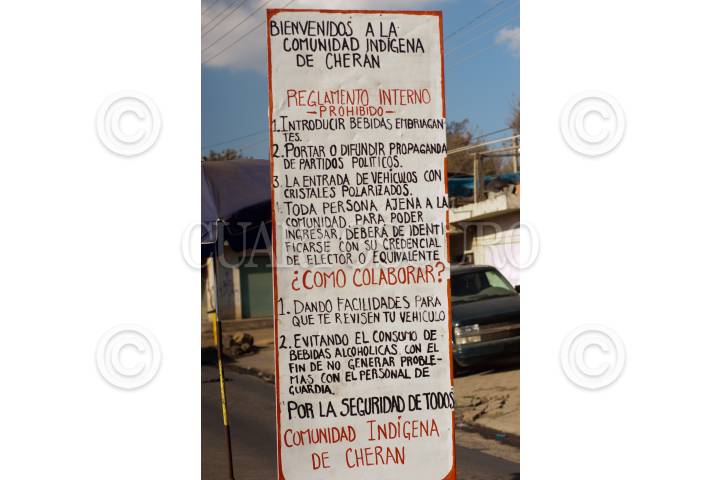 BIENVENIDOS A LA
COMUNIDAD INDÍGENA
DE CHERAN
REGLAMENTO INTERNO
- PROHIBIDO -
1. INTRODUCIR BEBIDAS EMBRIAGAN
TES.
2. PORTAR O DIFUNDIR PROPAGANDA
DE PARTIDOS POLÍTICOS.
3. LA ENTRADA DE VEHÍCULOS CON
CRISTALES POLARIZADOS.
TODA PERSONA AJENA A LA
COMUNIDAD, PARA PODER
INGRESAR, DEBERÁ DE IDENTI
FICARSE CON SU CREDENCIAL
DE ELECTOR O EQUIVALENTE
¿COMO COLABORAR?
1. DANDO FACILIDADES PARA
QUE TE REVISEN TU VEHICULO
2. EVITANDO EL CONSUMO DE
BEBIDAS ALCOHOLICAS CON EL
FIN DE NO GENERAR PROBLE-
MAS CON EL PERSONAL DE
GUARDIA.
POR LA SEGURIDAD DE TODOS
COMUNIDAD INDÍGENA
DE CHERAN